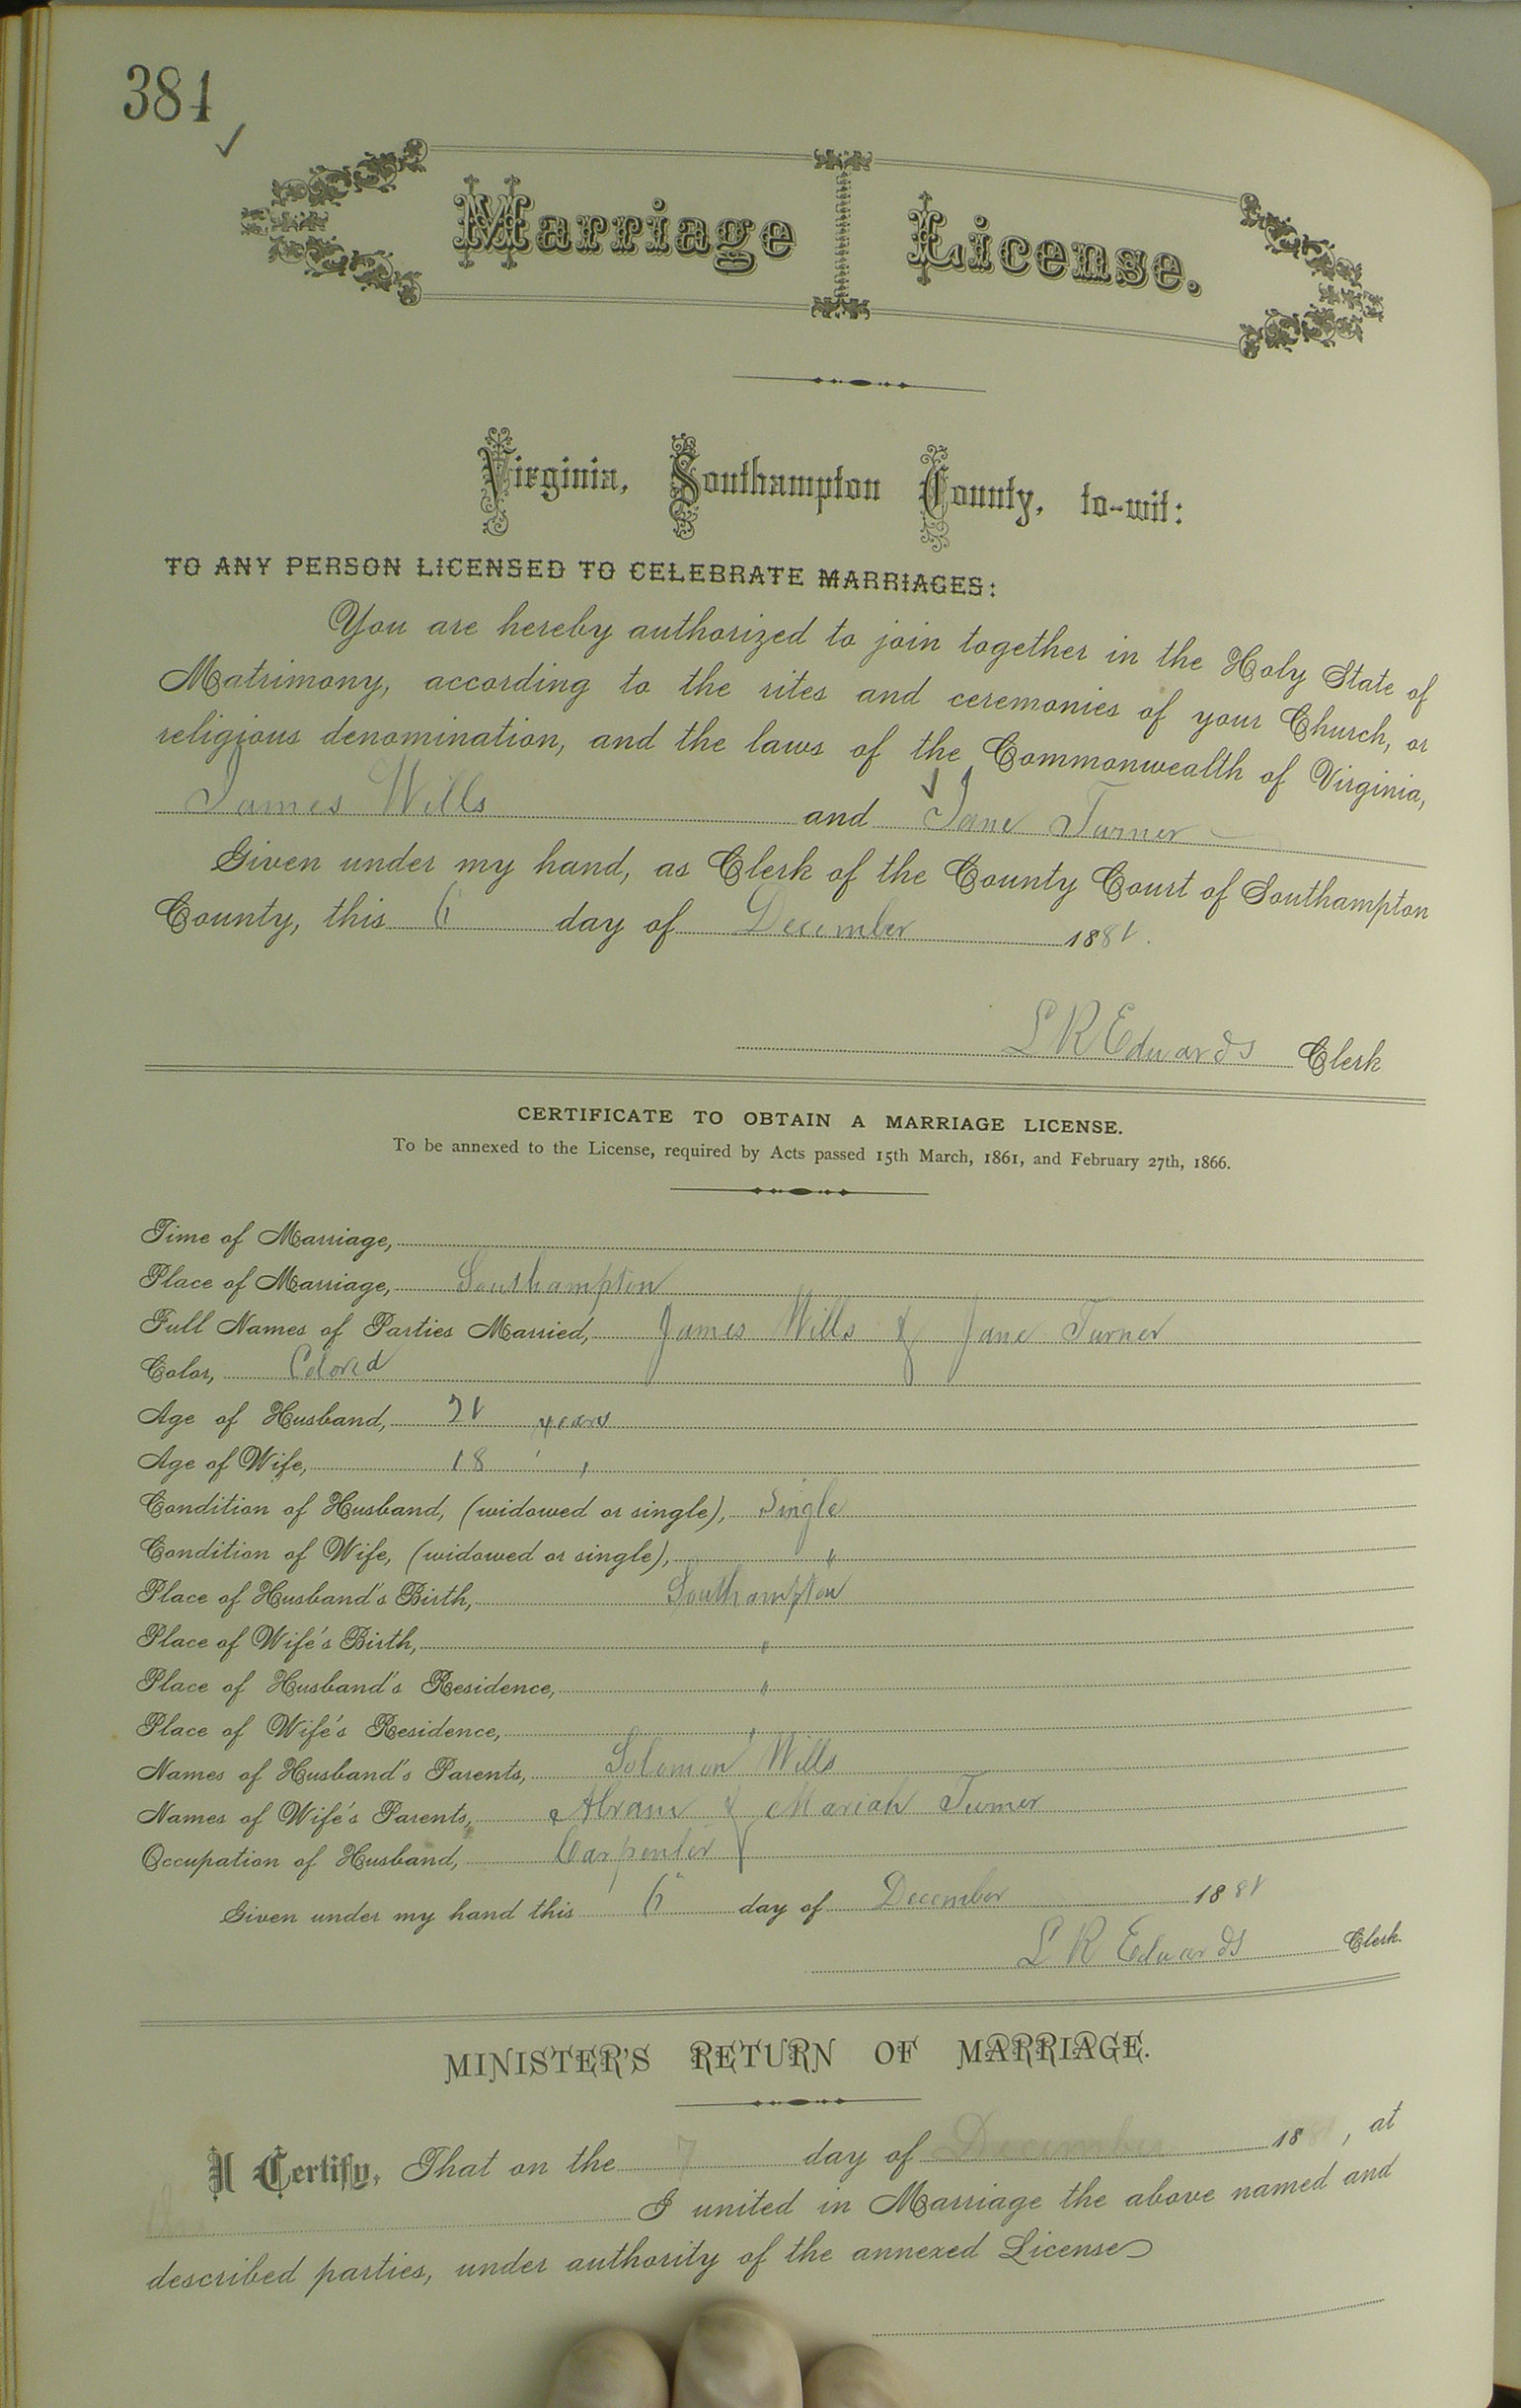 384
Marriage License.
Virginia, Southampton County, to-wit:
TO ANY PERSON LICENSED TO CELEBRATE MARRIAGES:
You are hereby authorized to join together in the Holy State of
Matrimony, according to the rites and ceremonies of your Church, or
religious denomination, and the laws of the Commonwealth of Virginia,
James Wills and Jane Turner
Given under my hand, as Clerk of the County Court of Southampton
County, this 6 day of December 1881.
L R Edwards Clerk
CERTIFICATE TO OBTAIN A MARRIAGE LICENSE.
To be annexed to the License, required by Acts passed 15th March, 1861, and February 27th, 1866.
Time of Marriage,
Place of Marriage, Southampton
Full Names of Parties Married, James Wills & Jane Turner
Color, Colored
Age of Husband, 21 years
Age of Wife, 18 " "
Condition of Husband, (widowed or single), Single
Condition of Wife, (widowed or single), "
Place of Husband's Birth, Southampton
Place of Wife's Birth, "
Place of Husband's Residence, "
Place of Wife's Residence, "
Names of Husband's Parents, Solomon Wills
Names of Wife's Parents, Abram & Mariah Turner
Occupation of Husband, Carpenter
Given under my hand this 6" day of December 1881
L R Edwards Clerk.
MINISTER'S RETURN OF MARRIAGE.
I Certify, That on the 7 day of December 18 , at
I united in Marriage the above named and
described parties, under authority of the annexed License